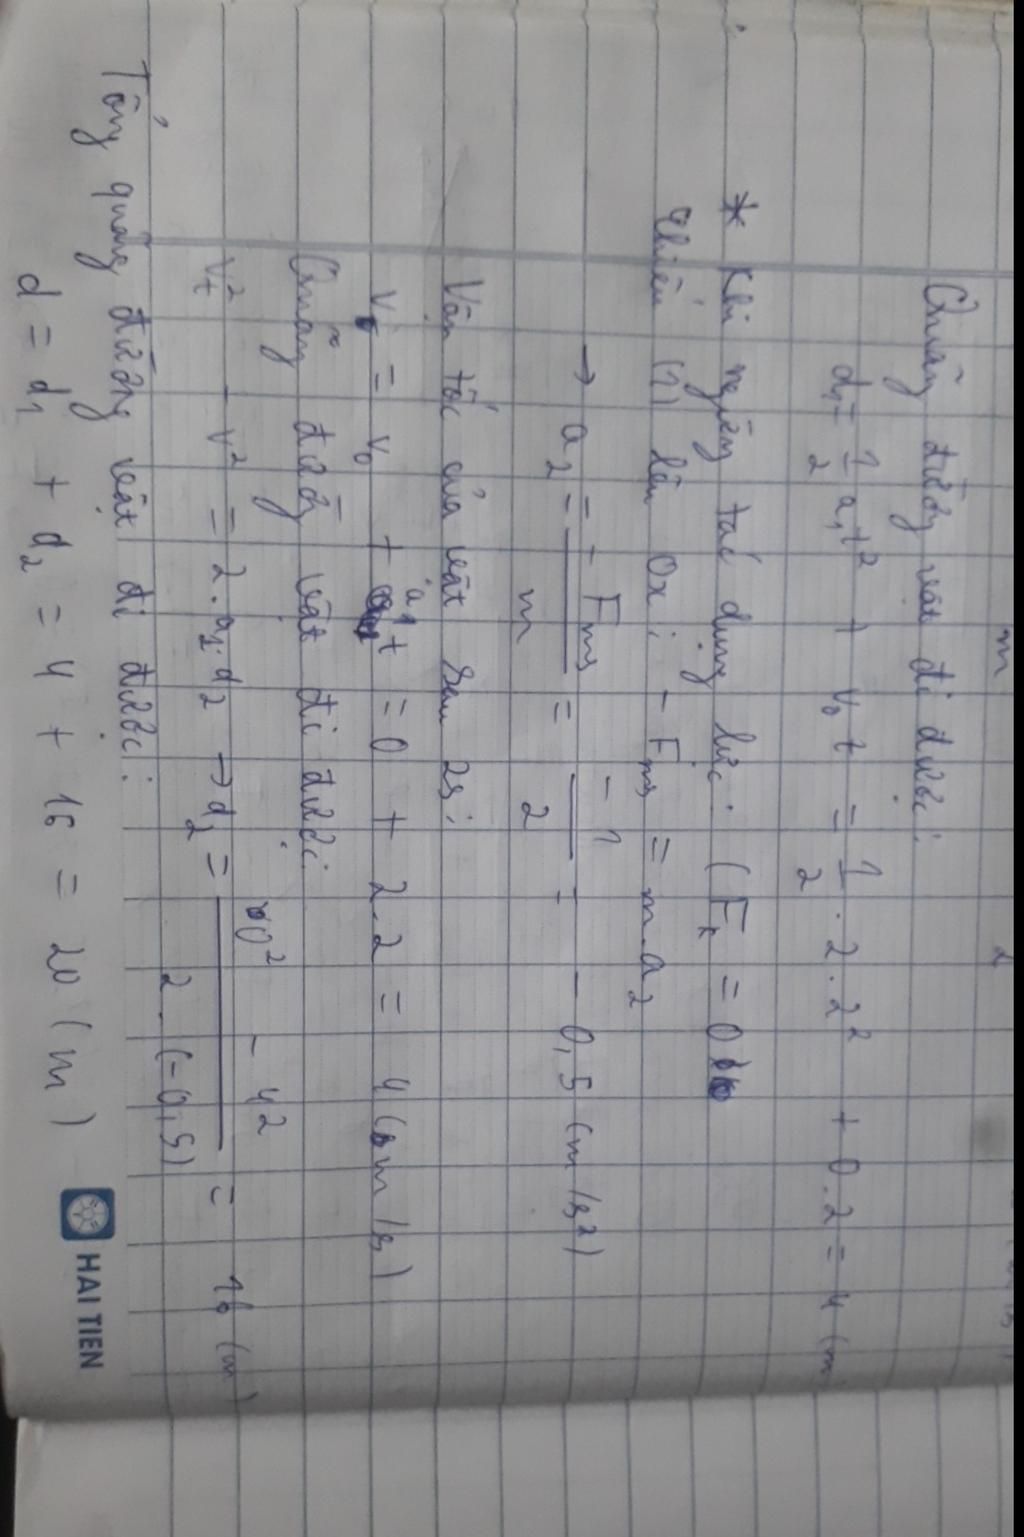 m 2
Quãng đường vật đi được:
d₁ = 1/2 a₁t² + v₀t = 1/2 . 2 . 2² + 0.2 = 4 (m
* Khi ngừng tác dụng lực: (Fₖ = 0
Chiếu (1) lên Ox: - Fms = m.a₂
→ a₂ = - Fms / m = - 1 / 2 = - 0,5 (m/s²)
Vận tốc của vật sau 2s:
v = v₀ + a₁t = 0 + 2.2 = 4 (m/s)
Quãng đường vật đi được:
vₜ² - v² = 2.a₂.d₂ → d₂ = 0² - 4² / 2.(-0,5) = 16 (m)
Tổng quãng đường vật đi được:
d = d₁ + d₂ = 4 + 16 = 20 (m)
HAI TIEN